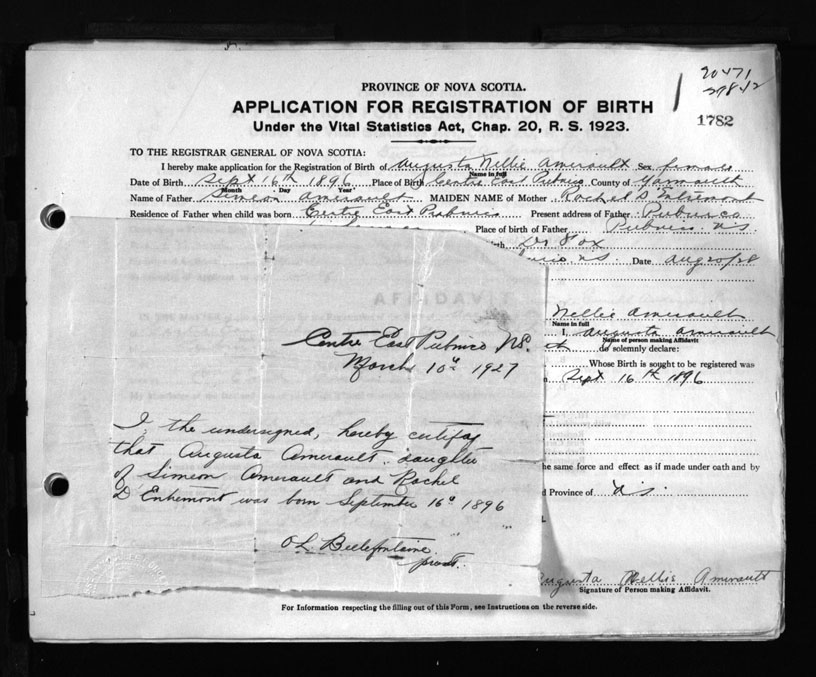 20471
29842
1782
PROVINCE OF NOVA SCOTIA.
APPLICATION FOR REGISTRATION OF BIRTH
Under the Vital Statistics Act, Chap. 20, R. S. 1923.
TO THE REGISTRAR GENERAL OF NOVA SCOTIA:
I hereby make application for the Registration of Birth of Augusta Nellie Amirault Sex female
Name in full
Date of Birth Sept 16th 1896 Place of Birth Centre East Pubnico County of Yarmouth
Month Day Year
Name of Father Simeon Amirault MAIDEN NAME of Mother Rachel D'Entremont
Residence of Father when child was born Centre East Pubnico Present address of Father Pubnico
Place of birth of Father Pubnico. N.S.
Dr Fox
N.S. Date Aug 20/28
AFFIDAVIT
Nellie Amirault
Name in full
I, Augusta Amirault
Name of person making Affidavit
do solemnly declare:
Whose Birth is sought to be registered was
Sept 16th 1896
he same force and effect as if made under oath and by
d Province of N.S.
Augusta Nellie Amirault
Signature of Person making Affidavit.
For Information respecting the filling out of this Form, see Instructions on the reverse side.
Centre East Pubnico NS.
March 10th 1927
I the undersigned, hereby certify
that Augusta Amirault, daughter
of Simeon Amirault and Rachel
D'Entremont was born September 16th 1896